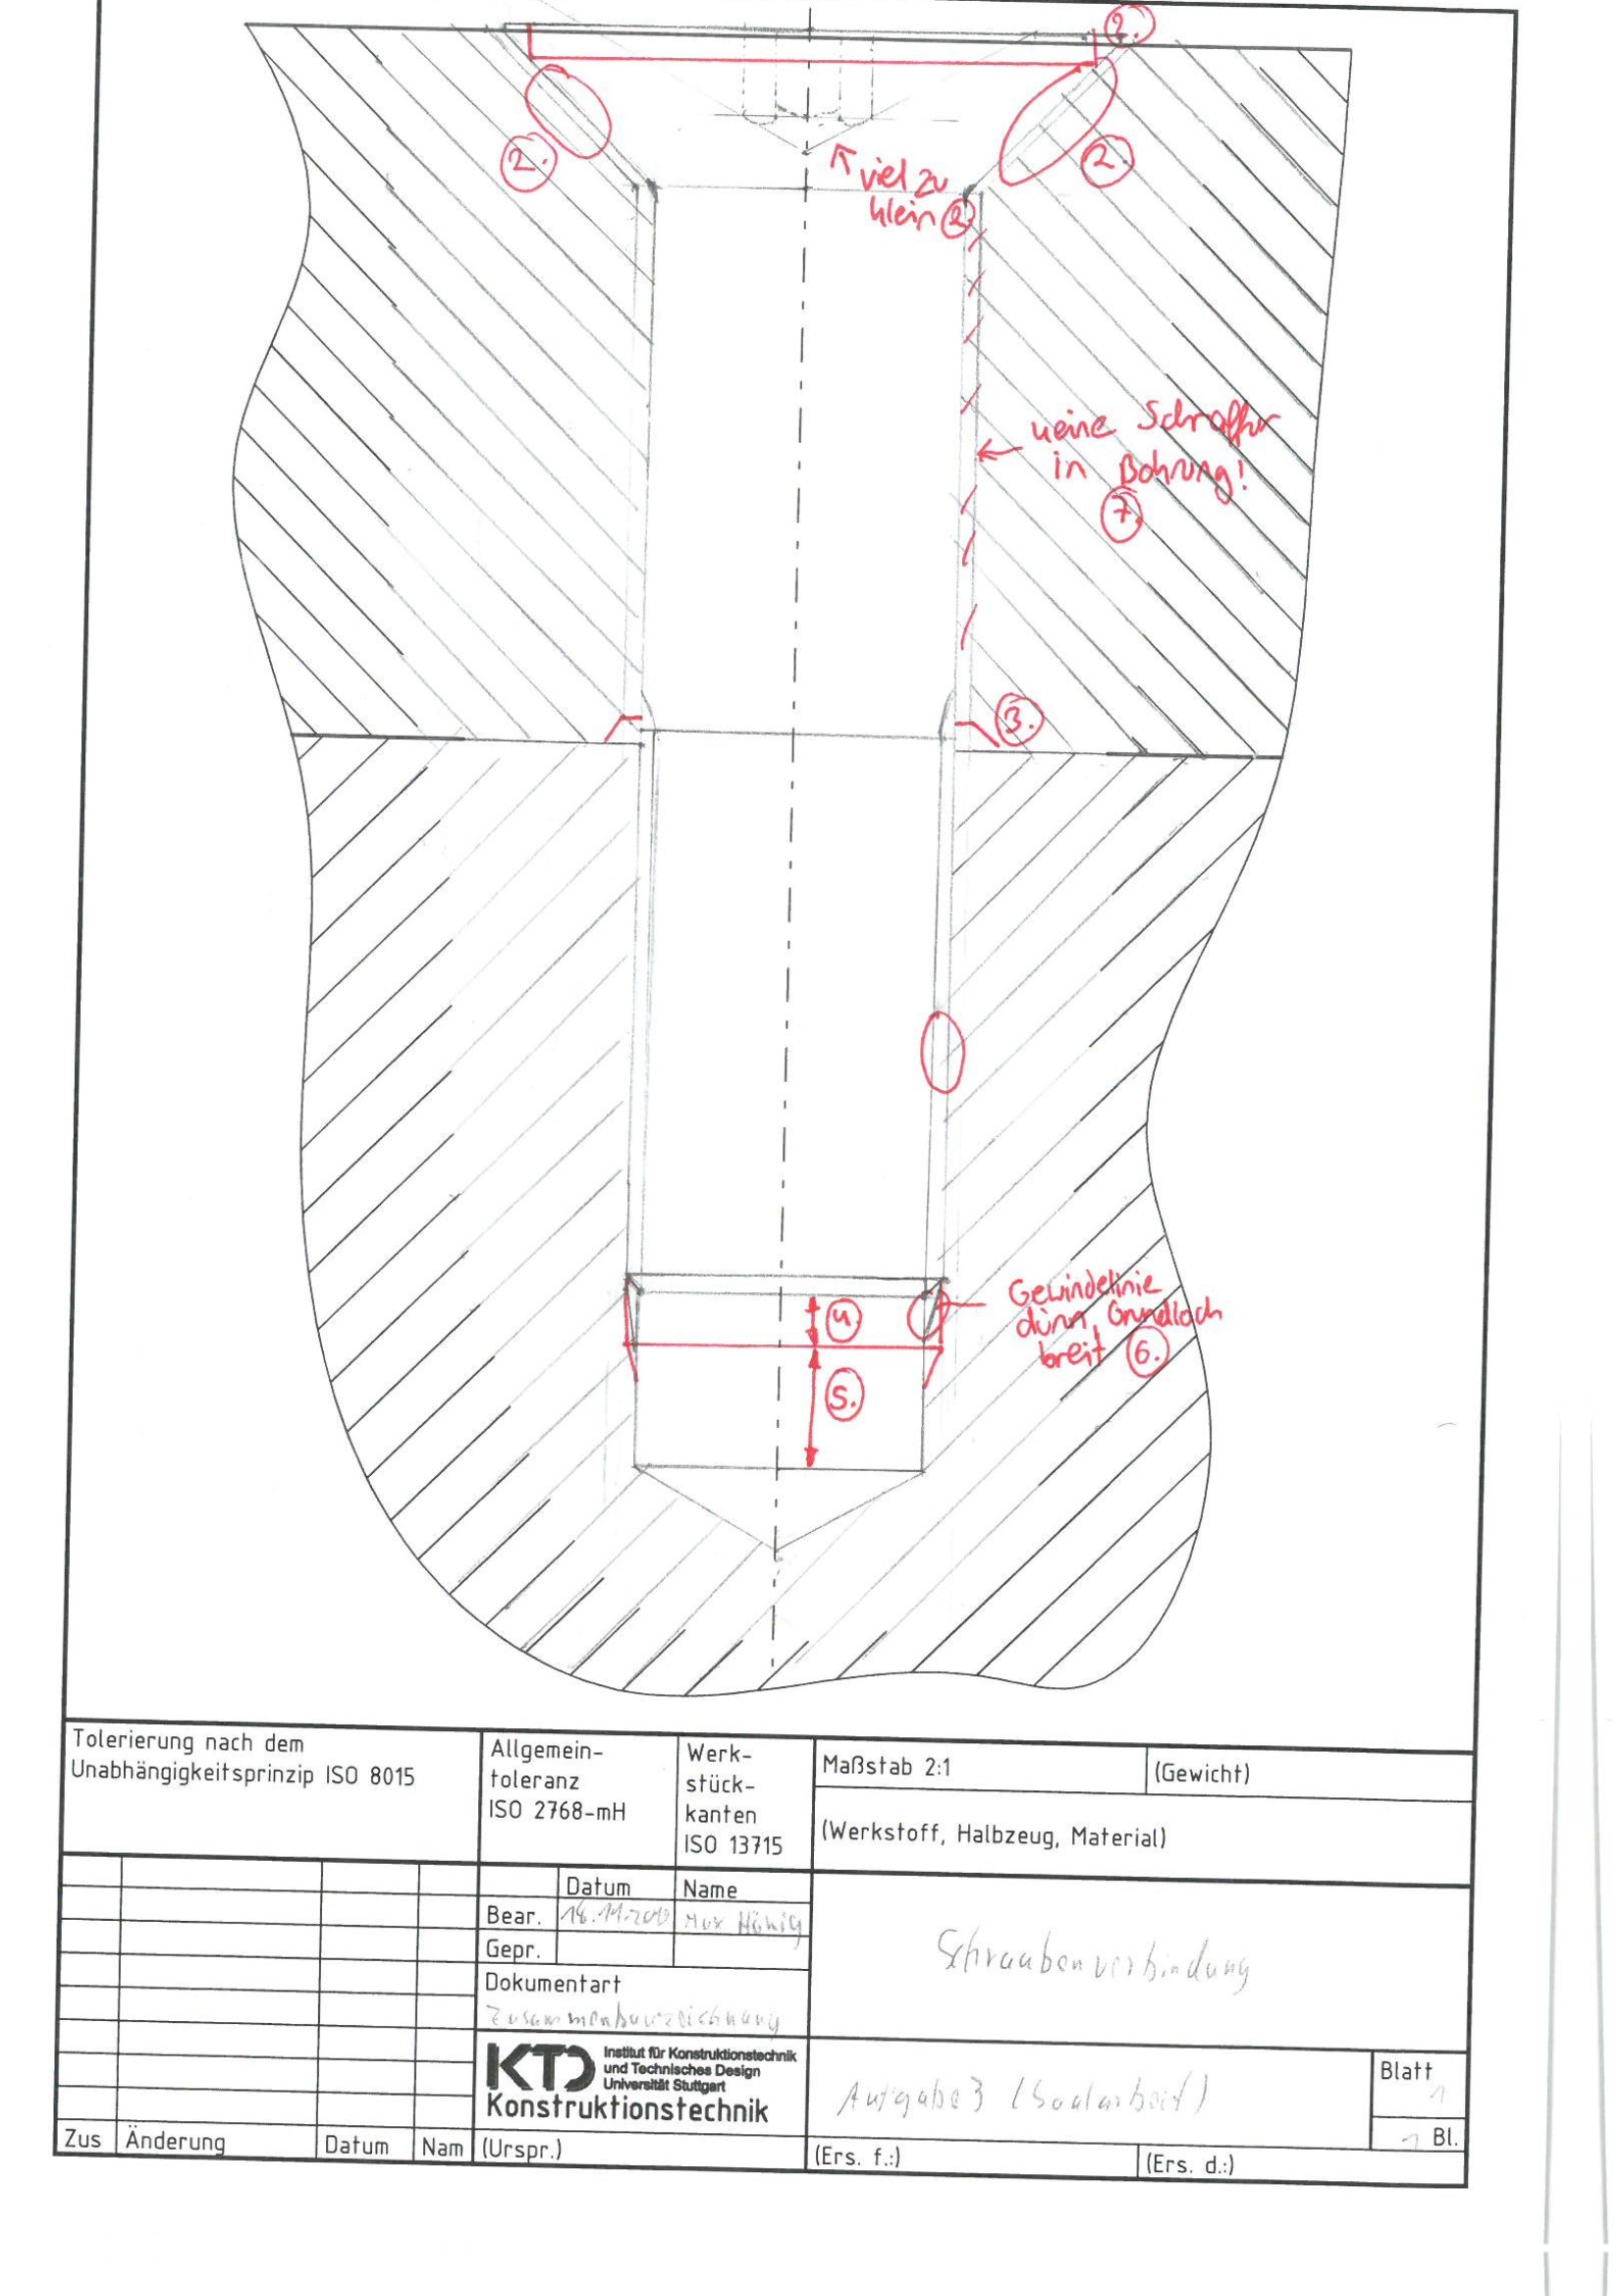 2.
2.
2.
viel zu
klein 2.
keine Schraffur
in Bohrung!
7.
3.
4.
Gewindelinie
dünn, Grundloch
breit 6.
5.
Tolerierung nach dem
Unabhängigkeitsprinzip ISO 8015
Allgemein-
toleranz
ISO 2768-mH
Werk-
stück-
kanten
ISO 13715
Maßstab 2:1
(Gewicht)
(Werkstoff, Halbzeug, Material)
Datum
Name
Bear.
Gepr.
Dokumentart
Zusammenbauzeichnung
Schraubenverbindung
KTD
Institut für Konstruktionstechnik
und Technisches Design
Universität Stuttgart
Konstruktionstechnik
Aufgabe 3 (Saalarbeit)
Blatt
1
1 Bl.
Zus
Änderung
Datum
Nam
(Urspr.)
(Ers. f.:)
(Ers. d.:)